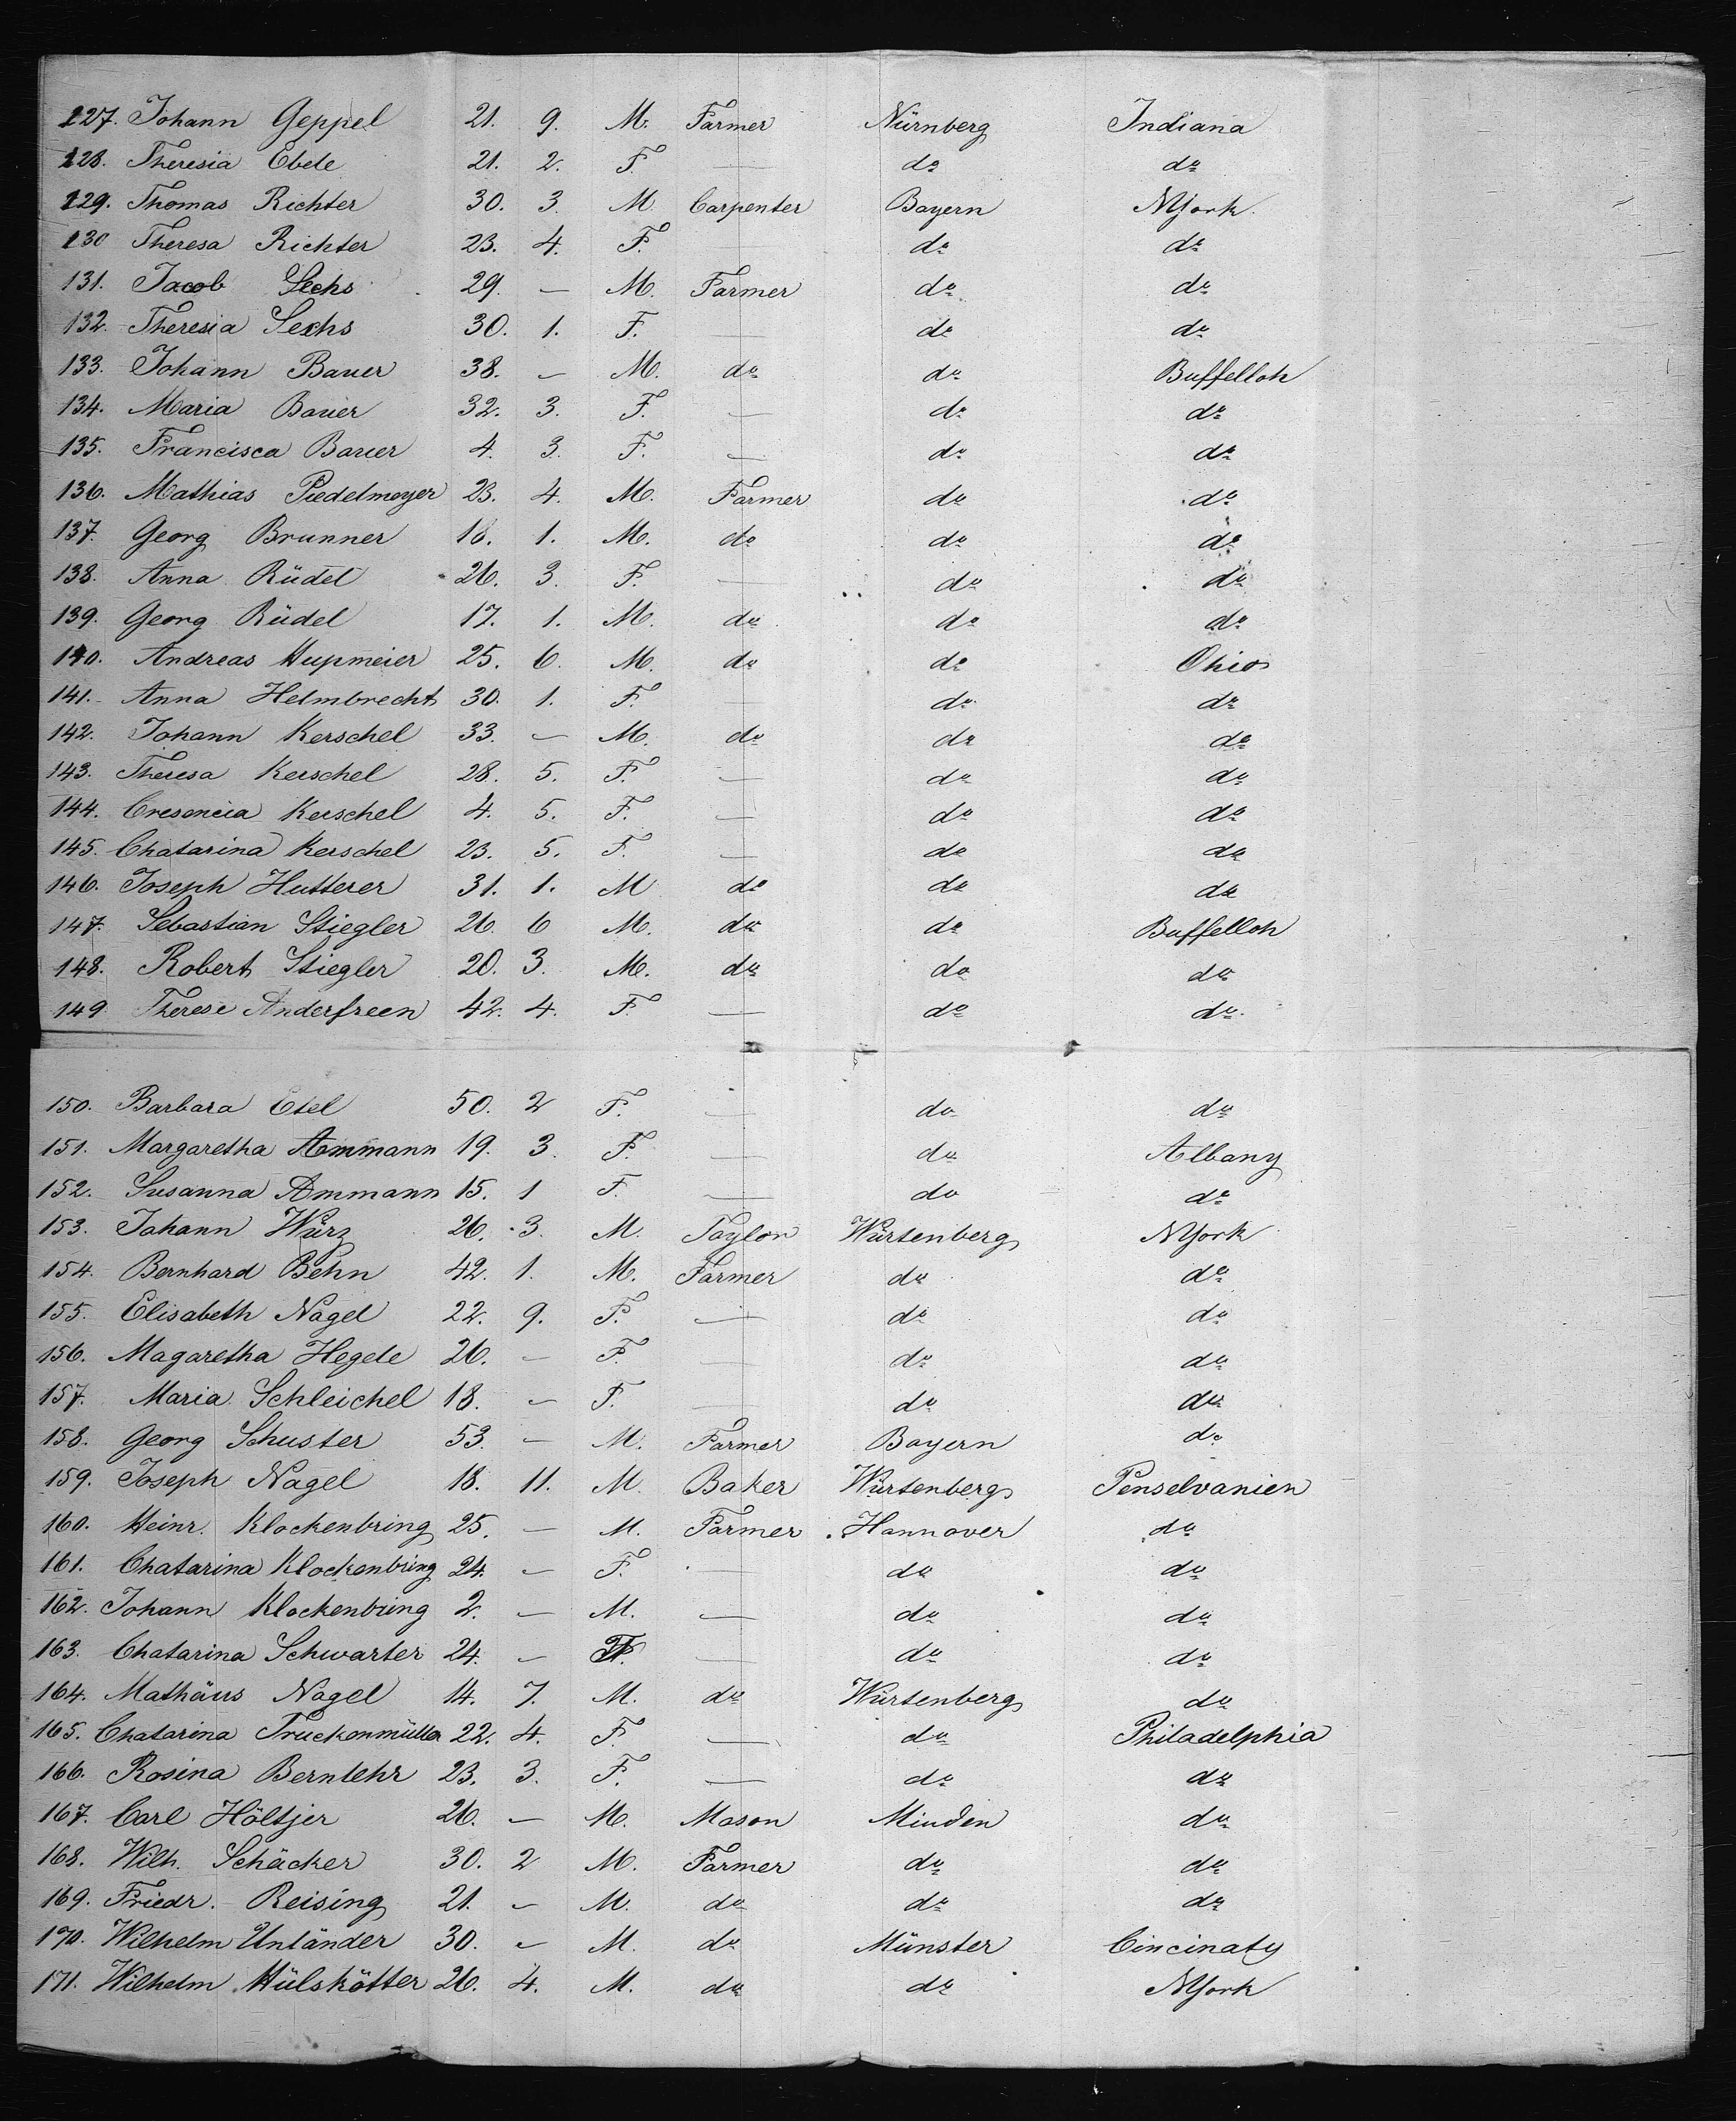 127. Johann Geppel 21. 9. M. Farmer Nürnberg Indiana
128. Theresia Ebele 21. 2. F. — do do
129. Thomas Richter 30. 3. M. Carpenter Bayern NYork.
130 Theresa Richter 23. 4. F. — do do
131. Jacob Sechs 29. — M. Farmer do do
132. Theresia Sechs 30. 1. F. — do do
133. Johann Bauer 38. — M. do do Buffelloh
134. Maria Bauer 32. 3. F. — do do
135. Francisca Bauer 4. 3. F. — do do
136. Mathias Piedelmeyer 23. 4. M. Farmer do do
137. Georg Brunner 18. 1. M. do do do
138. Anna Rüdel 26. 3. F. — do do
139. Georg Rüdel 17. 1. M. do do do
140. Andreas Hupmeier 25. 6. M. do do Ohio
141. Anna Helmbrecht 30. 1. F. — do do
142. Johann Kerschel 33. — M. do do do
143. Theresa Kerschel 28. 5. F. — do do
144. Cresencia Kerschel 4. 5. F. — do do
145. Chatarina Kerschel 23. 5. F. — do do
146. Joseph Hutterer 31. 1. M do do do
147. Sebastian Stiegler 26. 6 M. do do Buffelloh
148. Robert Stiegler 20. 3. M. do do do
149 Therese Anderfreen 42. 4. F. — do do
150. Barbara Etel 50. 2 F. — do do
151. Margaretha Ammann 19. 3. F. — do Albany
152. Susanna Ammann 15. 1 F. — do do
153. Johann Würz 26. 3. M. Taylor Würtenberg NYork
154. Bernhard Behn 42. 1. M. Farmer do do
155. Elisabeth Nagel 22. 9. F. — do do
156. Magaretha Hegele 26. — F. — do do
157. Maria Schleichel 18. — F. — do do
158. Georg Schuster 53. — M. Farmer Bayern do
159. Joseph Nagel 18. 11. M. Baker Würtenberg Penselvanien
160. Heinr. Klockenbring 25. — M. Farmer Hannover do
161. Chatarina Klockenbring 24. — F. — do do
162. Johann Klockenbring 2. — M. — do do
163. Chatarina Schwarter 24. — F. — do do
164. Mathäus Nagel 14. 7. M. do Würtenberg do
165. Chatarina Truckenmüller 22. 4. F. — do Philadelphia
166. Rosina Bernlehr 23. 3. F. — do do
167. Carl Höltjer 26. — M. Mason Minden do
168. Wilh. Schäcker 30. 2 M. Farmer do do
169. Friedr. Reising 21. — M. do do do
170. Wilhelm Unländer 30. — M. do Münster Cincinaty
171. Wilhelm Hülskötter 26. 4. M. do do NYork